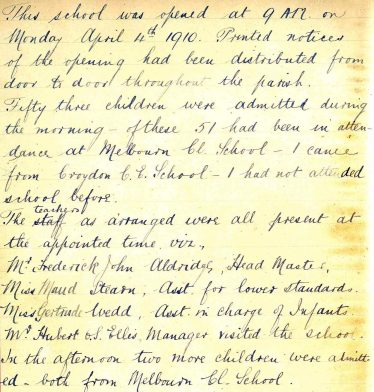 This school was opened at 9 A.M. on
Monday April 4th 1910. Printed notices
of the opening had been distributed from
door to door throughout the parish.
Fifty three children were admitted during
the morning - of these 51 had been in atten-
dance at Melbourn Cl. School - 1 came
from Croydon C.E. School - 1 had not attended
school before.
The staff teachers as arranged were all present at
the appointed time, viz.,
Mr Frederick John Aldridge, Head Master,
Miss Maud Stearn, Asst. for lower standards.
Miss Gertrude Wedd, Asst. in charge of Infants.
Mr Hubert S. Ellis, Manager visited the school.
In the afternoon two more children were admitt-
ed - both from Melbourn Cl. School.